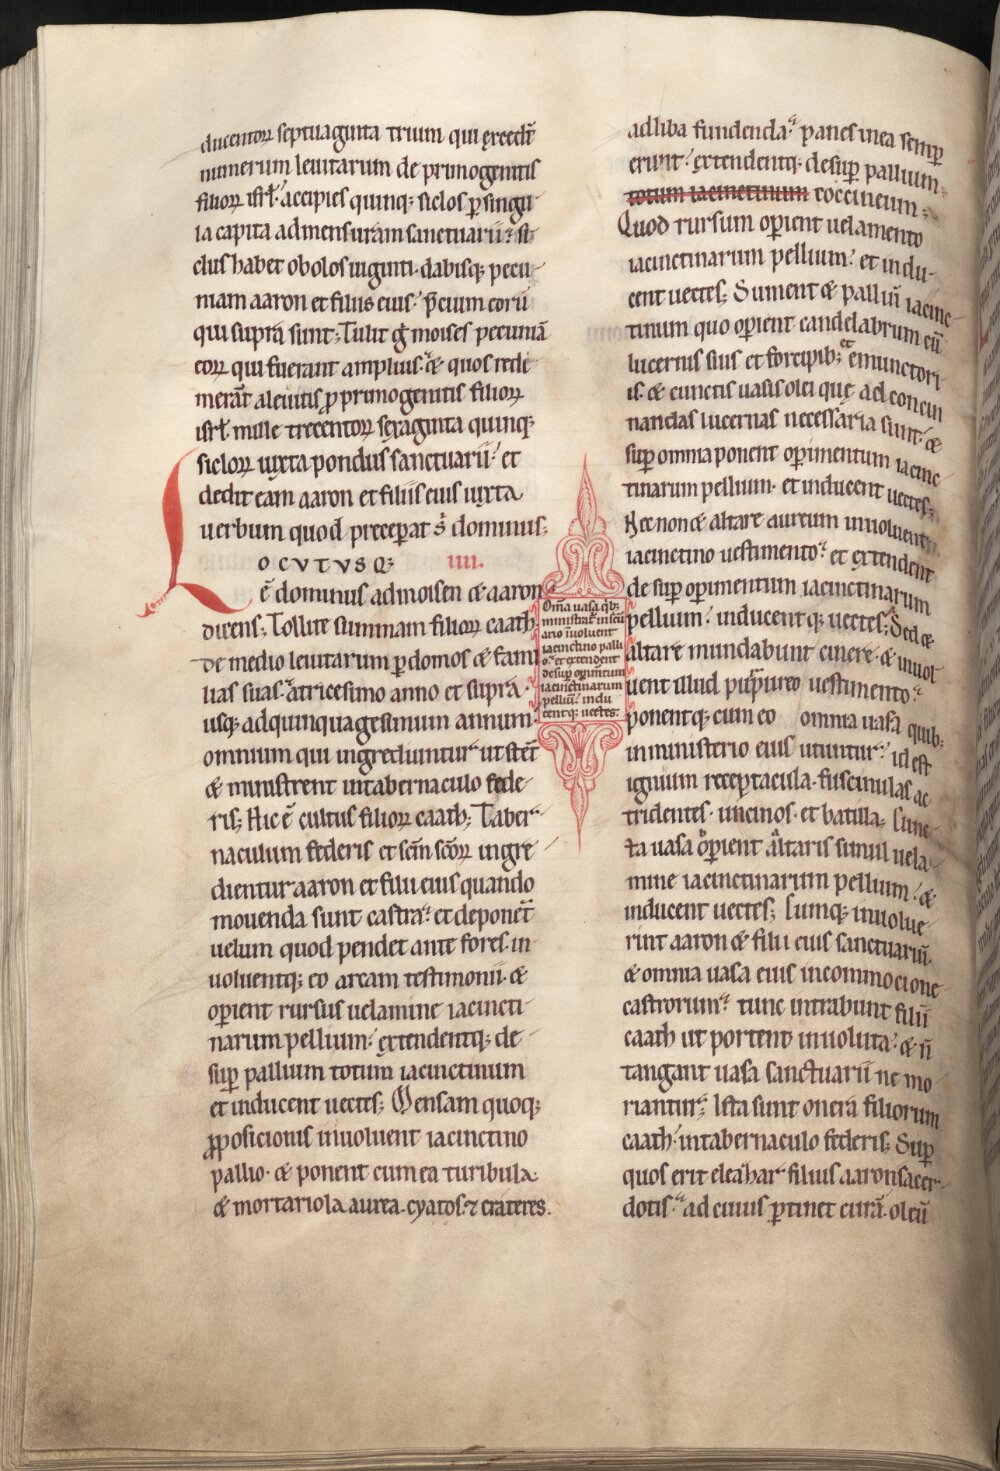 ducentoꝝ septuaginta trium qui excedt̄
numerum leuitarum de primogenitis
filioꝝ isrł. accipies quinq; siclos p̱ singu
la capita ad mensuram sanctuarii. si
clus habet obolos uiginti. dabisq; pecu
niam aaron et filiis eius. p̄cium eorū
qui supra sunt; Tulit gͥ moises pecuniā
eoꝝ qui fuerant amplius. & quos rede
merāt a leuitis ꝓ primogenitis filioꝝ
isrł. mille trecentoꝝ sexaginta quinq;
sicloꝝ iuxta pondus sanctuarii. et
dedit eam aaron et filiis eius iuxta
uerbum quod preceperat sͥ dominus;
LOCVTVSQ; IIII.
ē dominus ad moisen & aaron
dicens; Tollite summam filioꝝ caath
de medio leuitarum p̱ domos & fami
lias suas. a tricesimo anno et supra.
usq; ad quinquagesimum annum.
omnium qui ingrediuntur ut stēt
& ministrent in tabernaculo fede
ris; Hic ē cultus filioꝝ caath; Taber
naculum federis et scm̄ scōꝝ ingre
dientur aaron et filii eius quando
mouenda sunt castra. et deponēt
uelum quod pendet ante fores. in
uoluentq; eo arcam testimonii. &
op̱ient rursus uelamine iacincti
narum pellium. extendentq; de
sup̱ pallium totum iacinctinum
et inducent uectes; Mensam quoq;
ꝓposicionis inuoluent iacinctino
pallio. & ponent cum ea turibula.
& mortariola aurea. cyatos. ⁊ crateres.
Om̄a uasa qͥb;
ministrat̄ in scū
ario īuoluent
iacinctino palli
o. et extendent
desup̱ op̱im̄tum
iacinctinarum
pelliū. indu
centq; uectes.
ad liba fundenda. panes in ea semp̱
erunt. extendentq; desup̱ pallium
totum iacinctinum coccineum.
Quod rursum op̱ient uelamento
iacinctinarum pellium. et indu
cent uectes; Sument & palliū iacinc
tinum quo op̱ient candelabrum cū
lucernis suis et forcipib; et emunctori
is. & cunctis uasis olei quę ad concin
nandas lucernas necessaria sunt. &
sup̱ omnia ponent op̱imentum iacinc
tinarum pellium. et inducent uectes;
Nec non & altare aureum inuoluent
iacinctino uestimento. et extendent
desup̱ op̱imentum iacinctinarum
pellium. inducentq; uectes; Sed &
altare mundabunt cinere. & inuol
uent illud purp̱ureo uestimento.
ponentq; cum eo omnia uasa quib;
in ministerio eius utuntur. id est
ignium receptacula. fuscinulas ac
tridentes. uncinos. et batilla; Cunc
ta uasa op̱ient altaris simul uela
mine iacinctinarum pellium. &
inducent uectes; Cumq; inuolue
rint aaron & filii eius sanctuariū.
& omnia uasa eius in commocione
castrorum. tunc intrabunt filii
caath ut portent inuoluta. & ñ
tangant uasa sanctuarii ne mo
riantur; Ista sunt onera filiorum
caath. in tabernaculo federis; Sup̱
quos erit eleahar filius aaron sacer
dotis. ad cuius p̱tinet curā. oleū